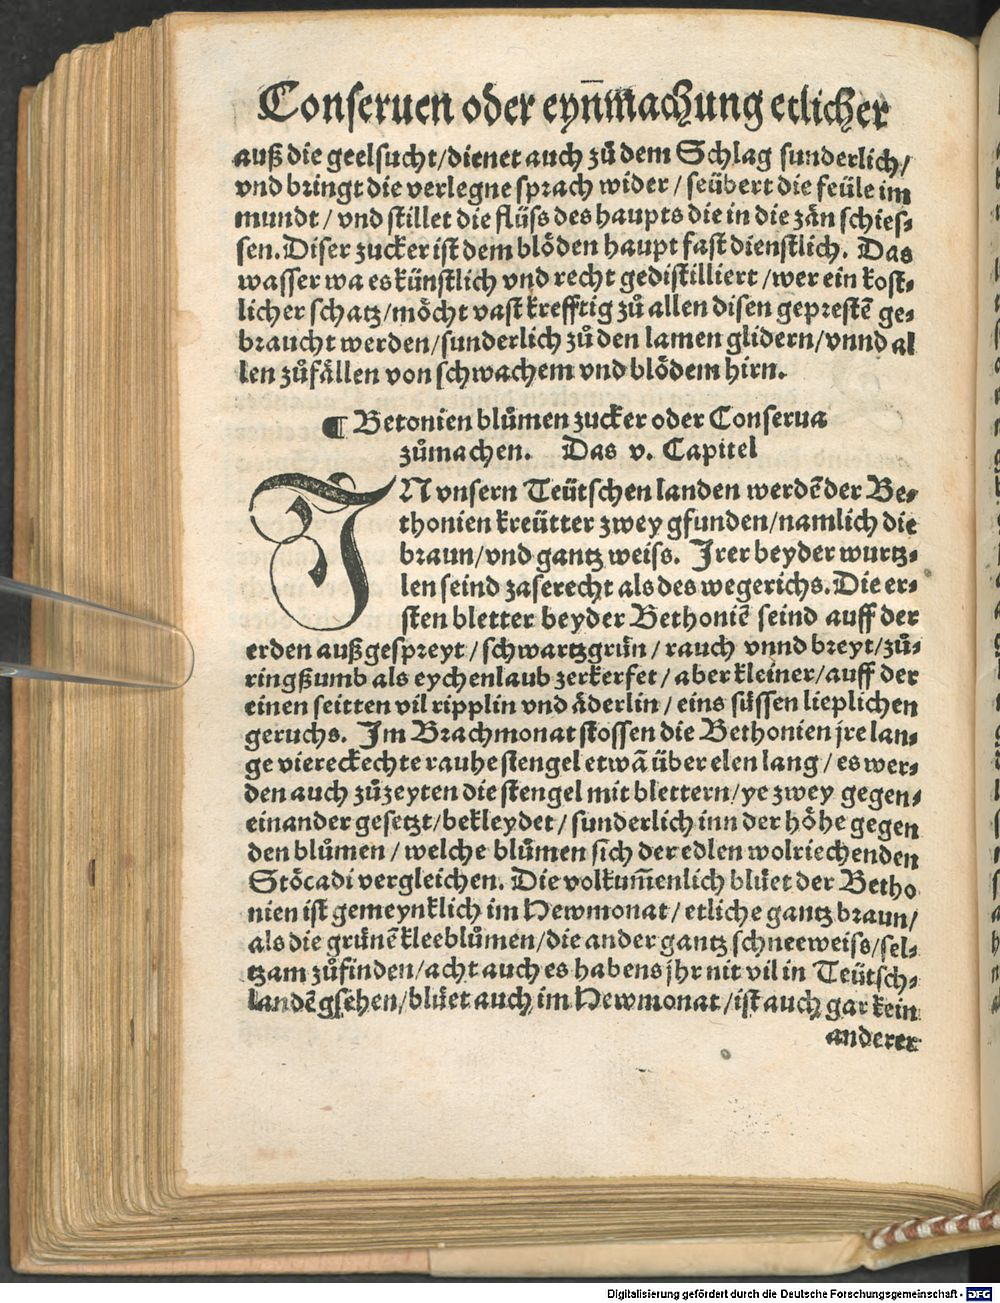 Conseruen oder eyn̄machung etlicher
auß die geelsucht/dienet auch zů dem Schlag sunderlich/
vnd bringt die verlegne sprach wider/seübert die feüle im
mundt/vnd stillet die flüss des haupts die in die zän schies-
sen. Diser zucker ist dem blöden haupt fast dienstlich. Das
wasser wa es künstlich vnd recht gedistilliert/wer ein kost-
licher schatz/möcht vast krefftig zů allen disen geprestē ge-
braucht werden/sunderlich zů den lamen glidern/vnnd al
len zůfällen von schwachem vnd blödem hirn.
¶ Betonien blůmen zucker oder Conserua
zůmachen. Das v. Capitel
IN vnsern Teütschen landen werdē der Be-
thonien kreütter zwey gfunden/namlich die
braun/vnd gantz weiss. Irer beyder wurtz-
len seind zaserecht als des wegerichs. Die er-
sten bletter beyder Bethoniē seind auff der
erden außgespreyt/schwartzgrün/rauch vnnd breyt/zů-
ringßumb als eychenlaub zerkerfet/aber kleiner/auff der
einen seitten vil ripplin vnd äderlin/eins süssen lieplichen
geruchs. Im Brachmonat stossen die Bethonien jre lan-
ge viereckechte rauhe stengel etwā über elen lang/es wer-
den auch zůzeyten die stengel mit blettern/ye zwey gegen-
einander gesetzt/bekleydet/sunderlich inn der höhe gegen
den blůmen/welche blůmen sich der edlen wolriechenden
Stöcadi vergleichen. Die volkum̄enlich blüet der Betho
nien ist gemeynklich im Hewmonat/etliche gantz braun/
als die grünē kleeblůmen/die ander gantz schneeweiss/sel-
tzam zůfinden/acht auch es habens jhr nit vil in Teütsch-
landē gsehen/blüet auch im Hewmonat/ist auch gar kein
anderer
Digitalisierung gefördert durch die Deutsche Forschungsgemeinschaft - DFG